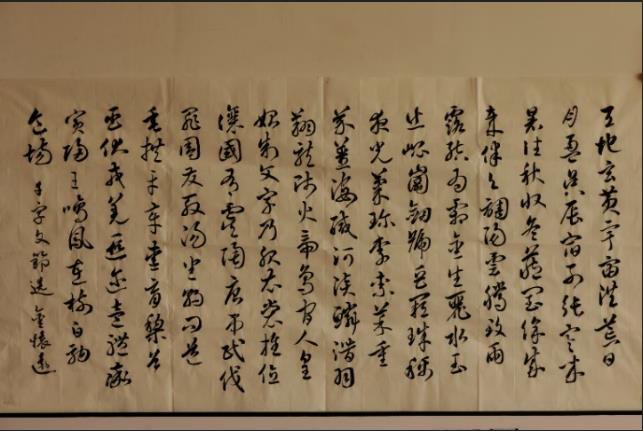 天地玄黃宇宙洪荒日
月盈昃辰宿列張寒來
暑往秋收冬藏閏餘成
歲律呂調陽雲騰致雨
露結為霜金生麗水玉
出崐崗劍號巨闕珠稱
夜光菓珍李柰菜重
芥薑海鹹河淡鱗潛羽
翔龍師火帝鳥官人皇
始制文字乃服衣裳推位
讓國有虞陶唐吊民伐
罪周發殷湯坐朝問道
垂拱平章愛育黎首
臣伏戎羌遐邇壹體率
賓歸王鳴鳳在樹白駒
食場 千字文節選 金懷遠